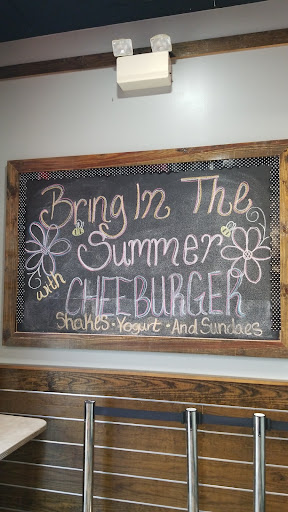 Bring In The
Summer
with
CHEEBURGER
Shakes • Yogurt • And Sundaes